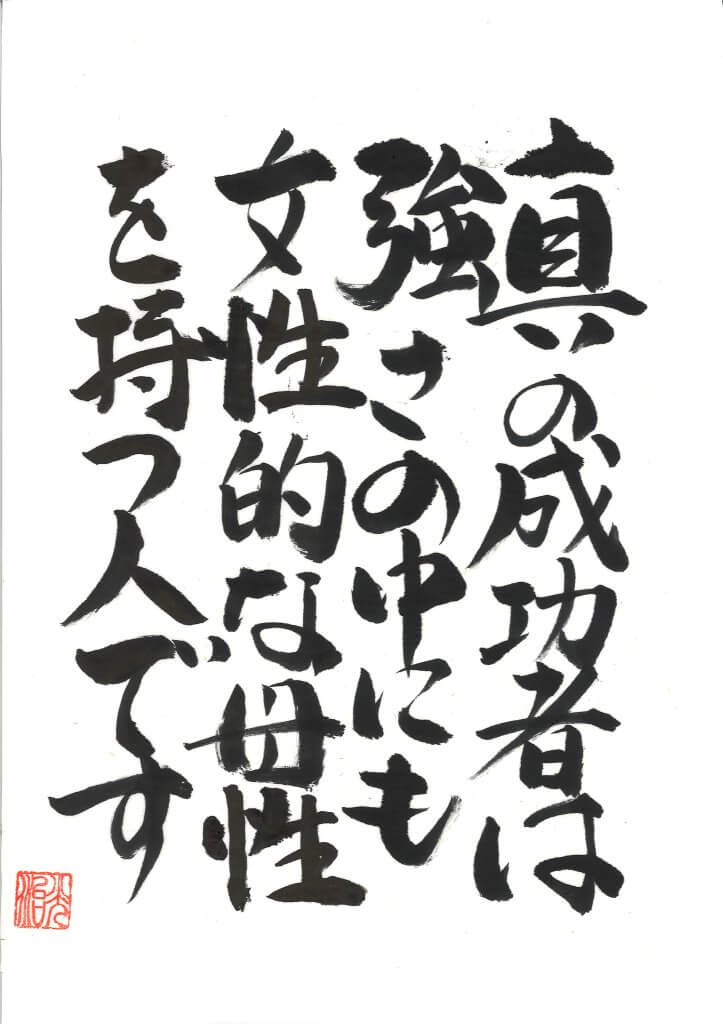 真の成功者は
強さの中にも
女性的な母性
を持つ人です